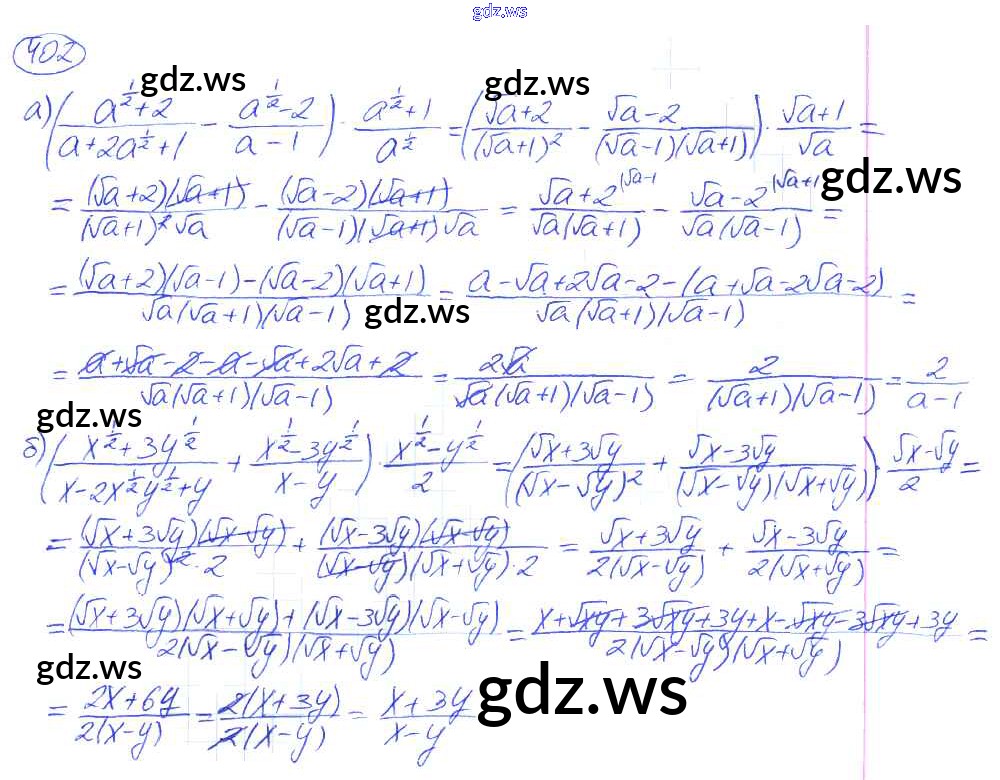 gdz.ws
402
gdz.ws gdz.ws
а) ((a^{1/2}+2)/(a+2a^{1/2}+1) - (a^{1/2}-2)/(a-1)) · (a^{1/2}+1)/a^{1/2} = ((√a+2)/(√a+1)^2 - (√a-2)/((√a-1)(√a+1))) · (√a+1)/√a =
gdz.ws
= ((√a+2)(√a+1))/((√a+1)^2 √a) - ((√a-2)(√a+1))/((√a-1)(√a+1)√a) = (√a+2^{(√a-1})/(√a(√a+1)) - (√a-2^{(√a+1})/(√a(√a-1)) =
= ((√a+2)(√a-1)-(√a-2)(√a+1))/(√a(√a+1)(√a-1)) = (a-√a+2√a-2-(a+√a-2√a-2))/(√a(√a+1)(√a-1)) =
gdz.ws
= (a+√a-2-a-√a+2√a+2)/(√a(√a+1)(√a-1)) = 2√a/(√a(√a+1)(√a-1)) = 2/((√a+1)(√a-1)) = 2/(a-1)
gdz.ws
б) ((x^{1/2}+3y^{1/2})/(x-2x^{1/2}y^{1/2}+y) + (x^{1/2}-3y^{1/2})/(x-y)) · (x^{1/2}-y^{1/2})/2 = ((√x+3√y)/(√x-√y)^2 + (√x-3√y)/((√x-√y)(√x+√y))) · (√x-√y)/2 =
= ((√x+3√y)(√x-√y))/((√x-√y)^2·2) + ((√x-3√y)(√x-√y))/((√x-√y)(√x+√y)·2) = (√x+3√y)/(2(√x-√y)) + (√x-3√y)/(2(√x+√y)) =
= ((√x+3√y)(√x+√y)+(√x-3√y)(√x-√y))/(2(√x-√y)(√x+√y)) = (x+√xy+3√xy+3y+x-√xy-3√xy+3y)/(2(√x-√y)(√x+√y)) =
gdz.ws gdz.ws
= (2x+6y)/(2(x-y)) = 2(x+3y)/(2(x-y)) = (x+3y)/(x-y)